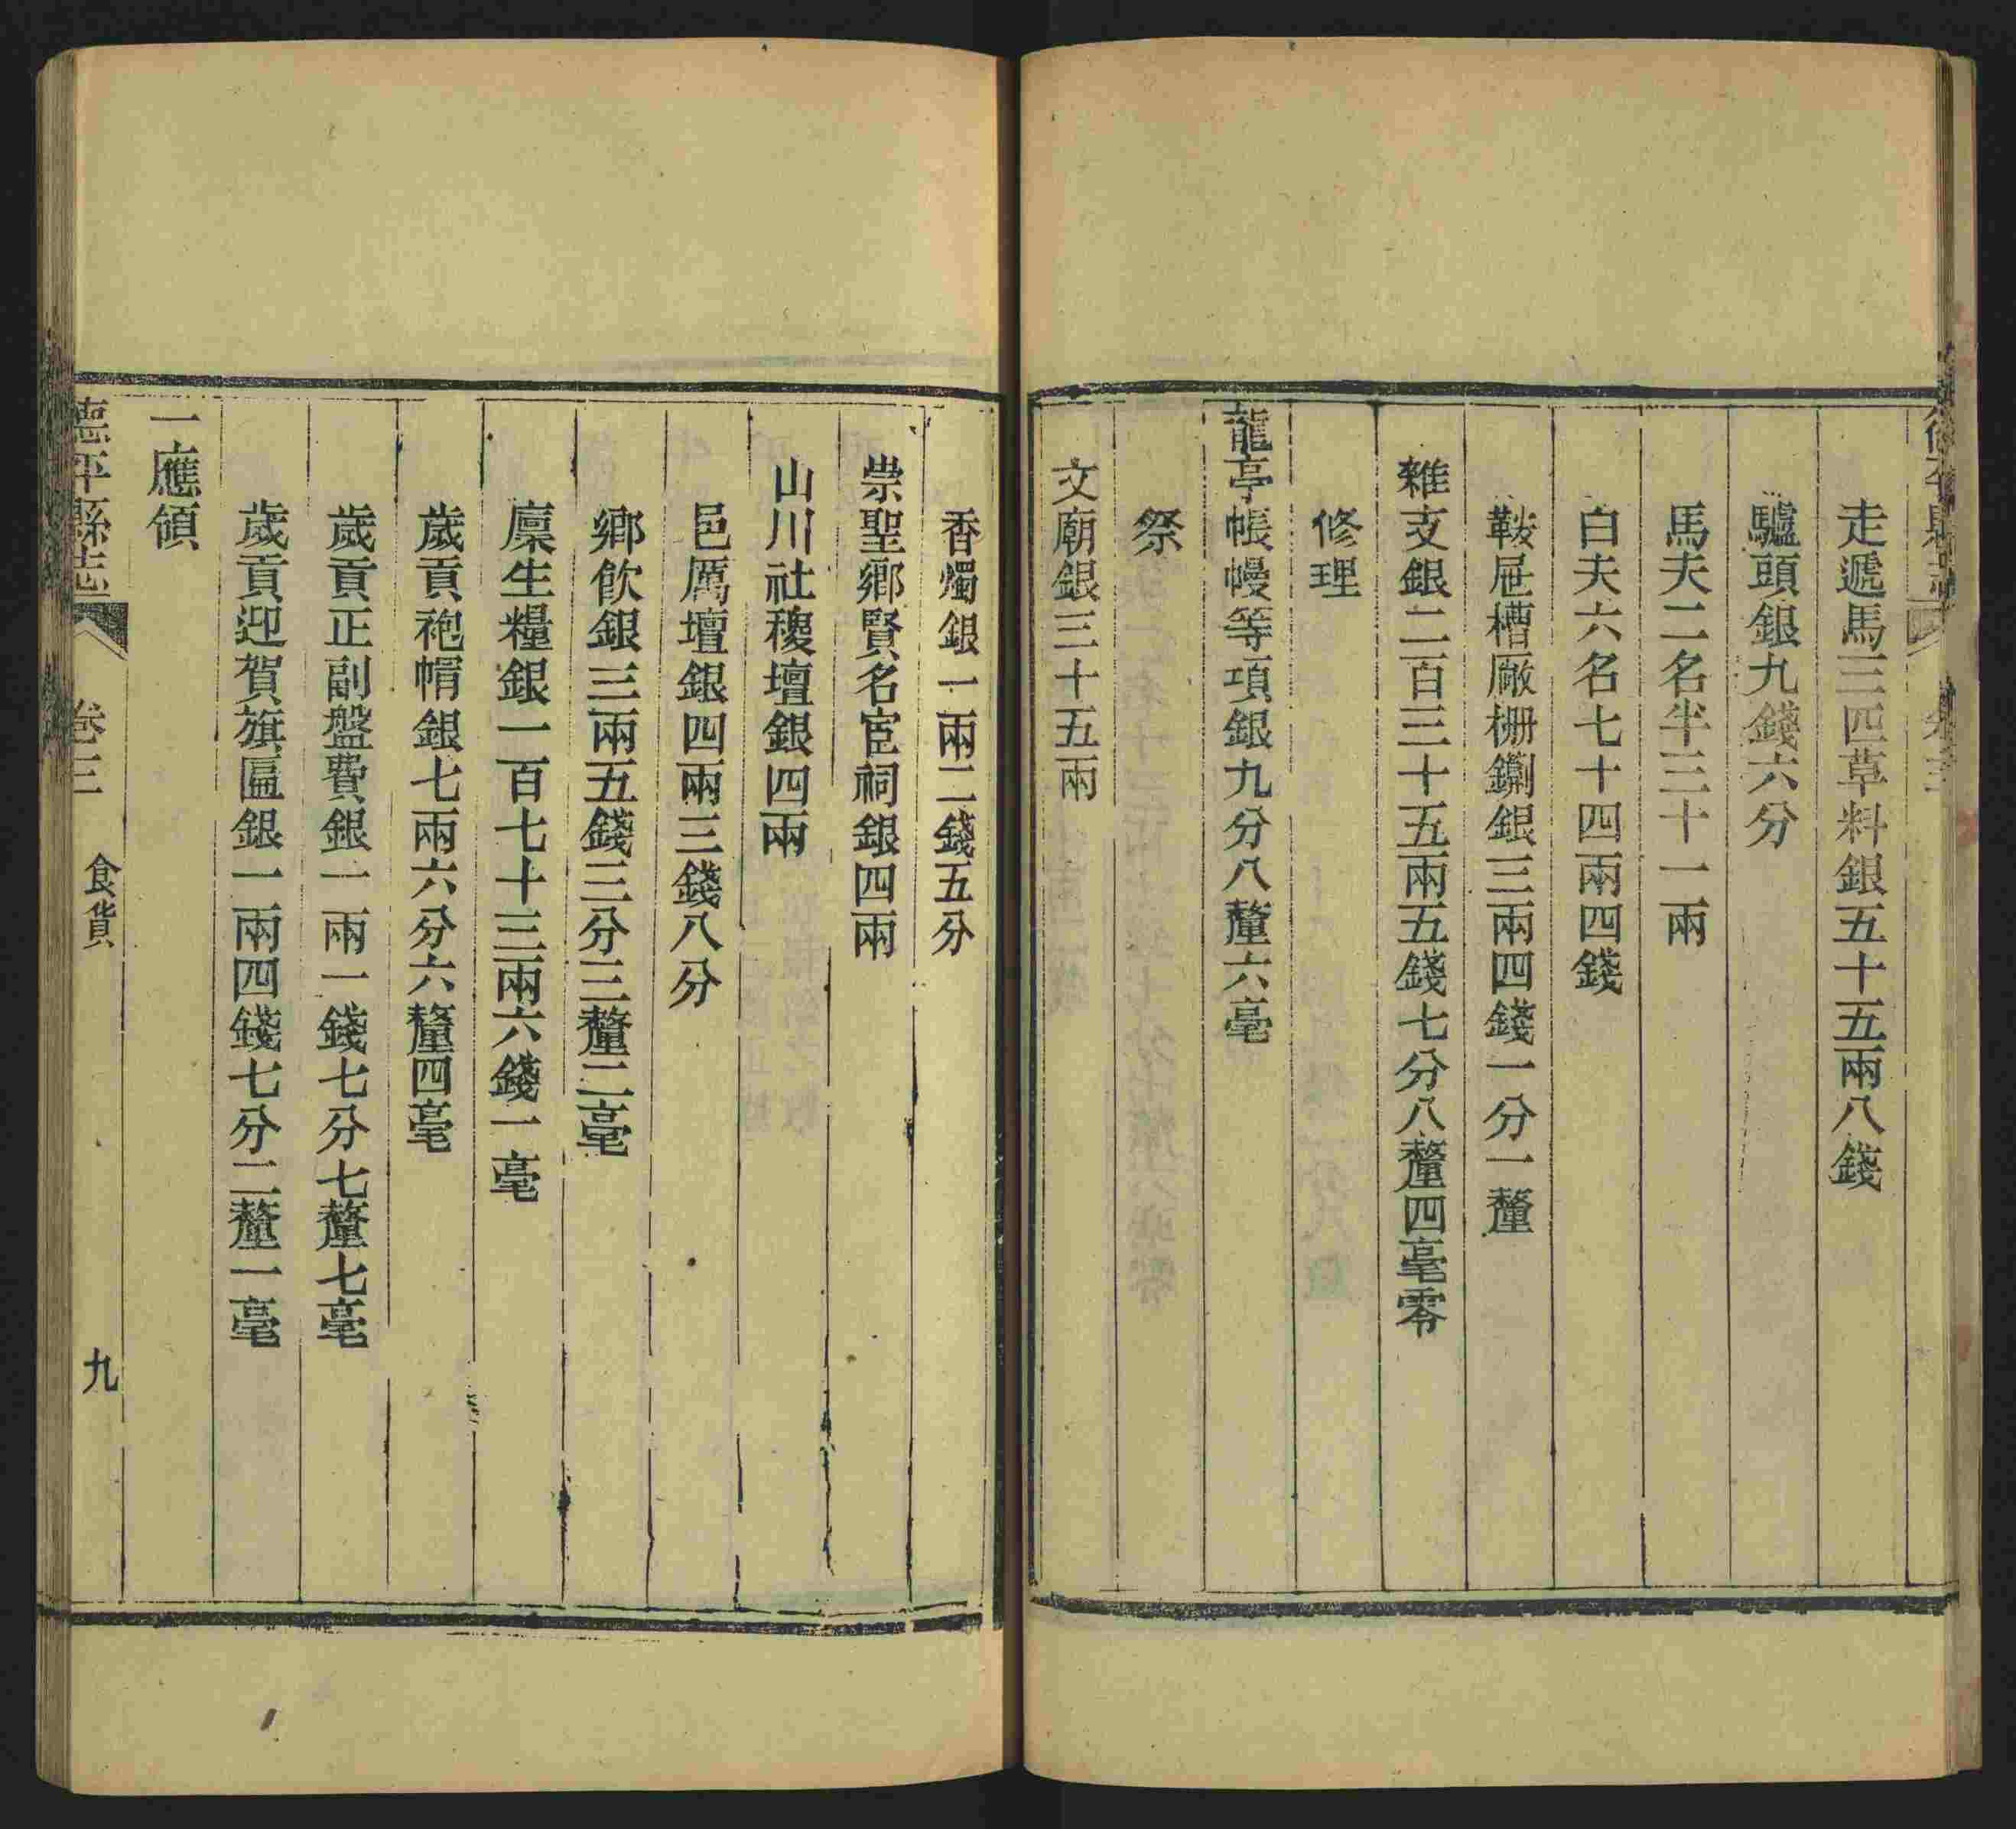 走遞馬三匹草料銀五十五兩八錢
驢頭銀九錢六分
馬夫二名半三十一兩
白夫六名七十四兩四錢
鞍屉槽廠柵鍘銀三兩四錢一分一釐
雜支銀二百三十五兩五錢七分八釐四毫零
修理
龍亭帳幔等項銀九分八釐六毫
祭
文廟銀三十五兩
香燭銀一兩二錢五分
崇聖鄉賢名宦祠銀四兩
山川社稷壇銀四兩
邑厲壇銀四兩三錢八分
鄉飲銀三兩五錢三分三釐二毫
廩生糧銀一百七十三兩六錢一毫
歲貢袍帽銀七兩六分六釐四毫
歲貢正副盤費銀一兩一錢七分七釐七毫
歲貢迎賀旗匾銀一兩四錢七分二釐一毫
一應領
德平縣志 卷三 食貨 九